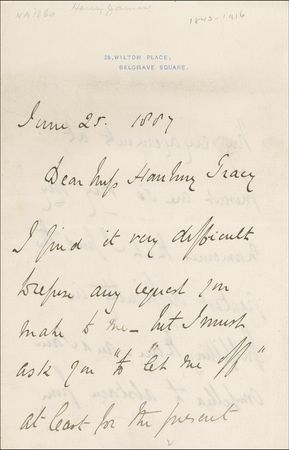 NA1860 Henry James 1843-1916
25, WILTON PLACE,
BELGRAVE SQUARE.
June 25. 1887
Dear Miss Hanbury Tracy
I find it very difficult
to refuse any request you
make to me – but I must
ask you "to let me off"
at least for the present